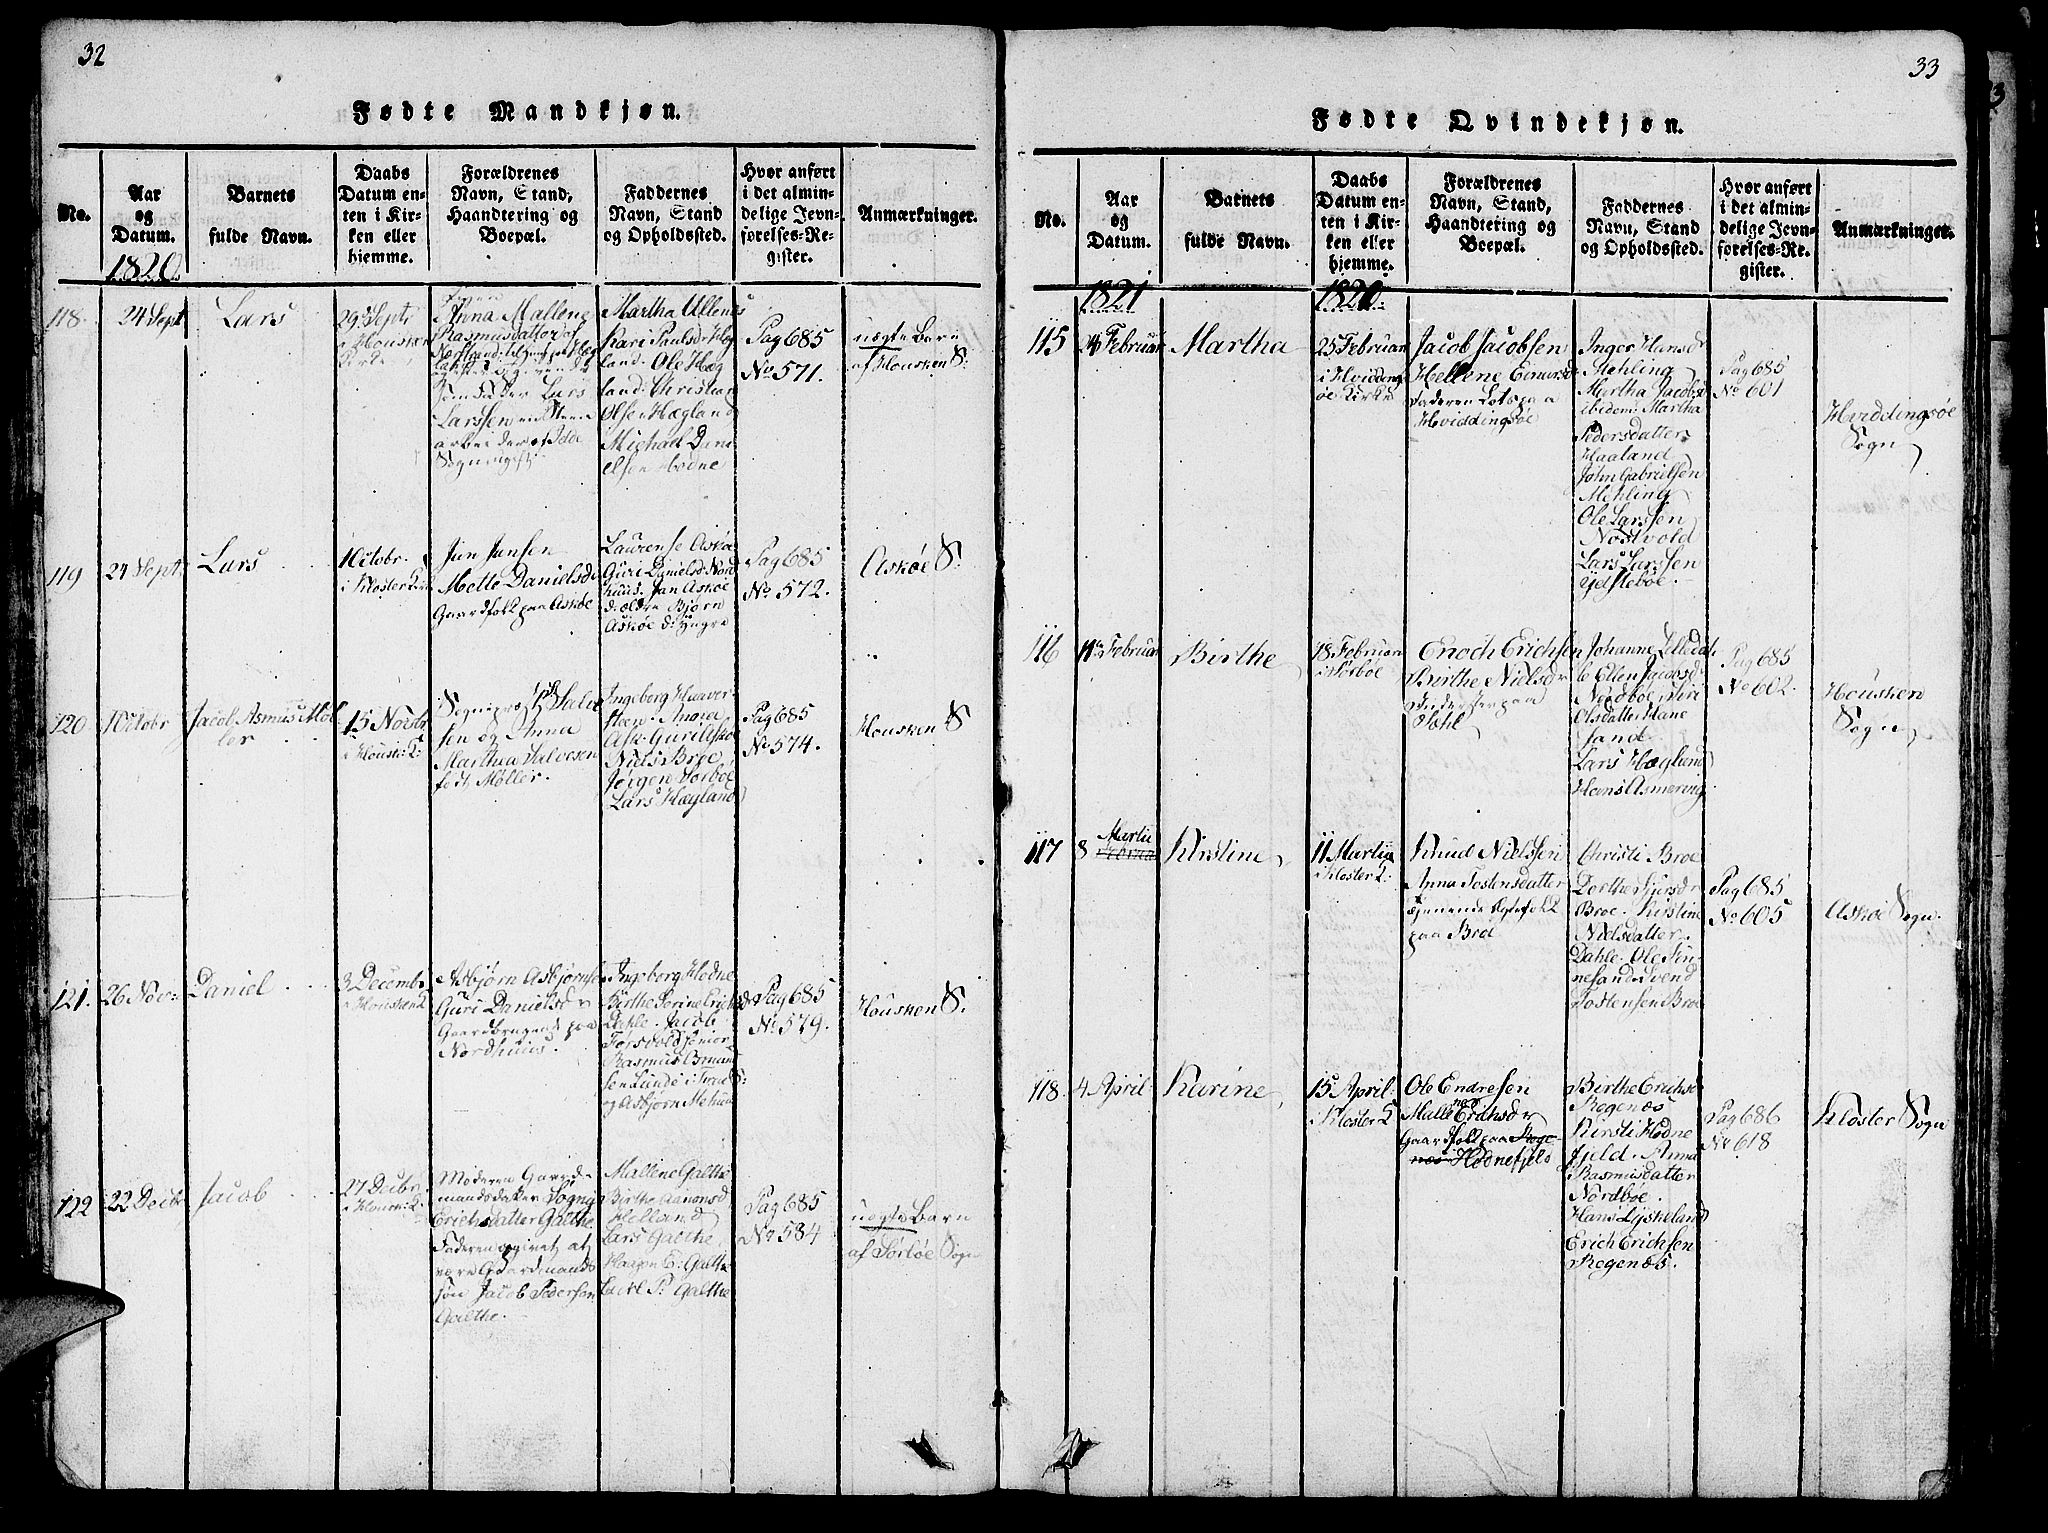 32
Fødte Mandkjøn.
No.
Aar
og
Datum.
Barnets
fulde Navn.
Daabs
Datum en-
ten i Kir-
ken eller
hjemme.
Forældrenes
Navn, Stand,
Haandtering og
Boepæl.
Faddernes
Navn, Stand
og Opholdssted.
Hvor anført
i det almin-
delige Jevn-
førelses-Re-
gister.
Anmærkninger.
1820
118.
24 Sept
Lars
29 Septi
i Housken
Kirke
Anna Mallene
Rasmusdatter af
Lars
Larssen en Steen
arbeider
Martha
Kari Paulsdr Hæg
land. Ole Hæg
land. Christian
Olsen Hægland
Michael Dani
elsen Hodne
Pag 685
No 571.
uægte Barn
af Housken S.
119
24 Sept.
Lars
1 Octobr.
i Kloster Kir
Jan Jansen
Mette Danielsdr
Gaardfolk paa Askøe
Laurense Askøe
Guri Danielsd. Nord
huus. Jan Askøe
d: ældre Bjørn
Askøe d: yngre
Pag 685
No 572.
Askøe S.
120
1 Octobr
Jacob Asmus Møl
ler
15 Novbr
i Housk: K:
Sogneprest
Salve
sen og Anna
Marthea Salvesen
født Møller.
Ingeborg Haaver
steen. Anna
Ask. Guri Askøe
Niels Broe
Jørgen Sørbøe
Lars Hægland
Pag 685
No 574.
Housken S
121.
26 Nov:
Daniel
3 Decembr
i Housken K
Asbjørn Asbjørnsen
Guri Danielsdr
Gaardbrugende paa
Nordhuus.
Ingeborg Hodne
Birthe Serine Erichsdr
Dahle. Jacob
Forsvold Senior
Rasmus
sen Lunde i
og Asbjørn
Pag 685
No 579.
Housken S.
122
22 Decbr
Jacob
27 Decbr
i Housk: K:
Moderen Gaard-
mandsdatter
Erichsdatter Galthe
Faderen opgivet at
være Gaardmands
søn Jacob Pedersen
Galthe.
Mallene Galthe
Birthe Aanonsd
Helland
Lars Galthe,
Haagen E. Galthe
P. Galthe
Pag 685
No 584
uægte Barn
af Sørbøe Sogn
33
Fødte Qvindekjøn.
No.
Aar
og
Datum.
Barnets
fulde Navn.
Daabs
Datum en-
ten i Kir-
ken eller
hjemme.
Forældrenes
Navn, Stand,
Haandtering og
Boepæl.
Faddernes
Navn, Stand
og Opholdssted.
Hvor anført
i det almin-
delige Jevn-
førelses-Re-
gister.
Anmærkninger.
1821
115
Februar
Martha
25 Februar
i Hvidding
øe Kirke
Jacob Jacobsen
Hellene
Faderen Lots paa
Hviddingsøe
Inger Hansdr
Mehling
Martha Jacobsd
ibidem. Martha
Pedersdatter
Haaland
John Gabrielsen
Mehling
Ole Larssen
Nostvold
Lars Larssen
Ydstebøe.
Pag 685
No 601
Hviddingsøe
Sogn
116
Februar
Birthe
18 Februar
i Sørbøe
Enoch Erichsen
Birthe Nielsdr
Inderster paa
Dahl
Johanne Lilledah
le Ellen Jacobsd
Nordbøe, Siri
Olsdatter Hane
sand
Lars Hæglund
Hans Asmærvig
Pag 685
No 602.
Housken
Sogn
117
8
Martii
Kirstine
11 Martii
i Kloster K:
Knud Nielssen
Anna Tostensdatter
tjenende Ægtefolk
paa Broe
Christi Broe
Dorthe Sjursdr
Broe. Kirstine
Nielsdatter
Dahle. Ole Fin
nesand. Svend
Tostensen Broe
Pag 685
No 605
Askøe Sogn.
118.
4 April
Karine
15 April
i Kloster K
Ole Endresen
Malli Erichsdr
Gaardfolk paa Rege
næs Hodnefjeld
Birthe Erichsd
Regenæs
Kirsti Hodne
fjeld. Anna
Rasmusdatter
Nordbøe.
Hans Lyskeland
Erich Erichsen
Regenæs.
Pag 686
No 618
Kloster Sogn